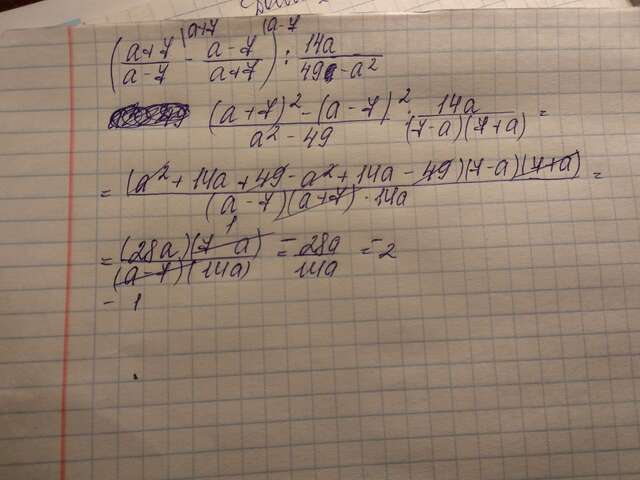 |a+7 |a-7
(a+7/a-7 - a-7/a+7) : 14a/49-a²
(a+7)²-(a-7)²/a²-49 : 14a/(7-a)(7+a) =
= (a²+14a+49-a²+14a-49)(7-a)(7+a)/(a-7)(a+7)·14a =
= (28a)(7-a)/(a-7)(14a) = -28a/14a = -2
1
- 1